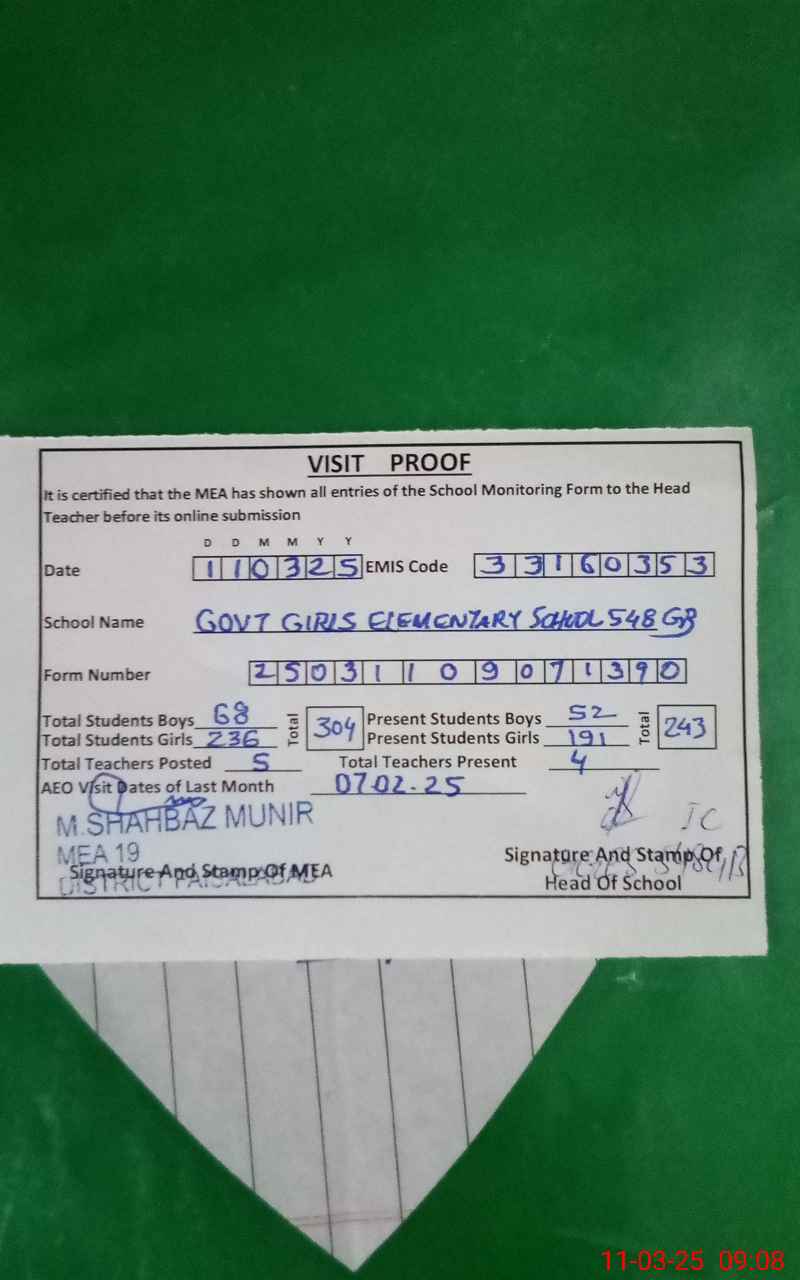 VISIT PROOF
It is certified that the MEA has shown all entries of the School Monitoring Form to the Head
Teacher before its online submission
D D M M Y Y
Date 110325 EMIS Code 33160353
School Name GOVT GIRLS ELEMENTARY SCHOOL 548 GB
Form Number 25031109071390
Total Students Boys 68 Total 304 Present Students Boys 52 Total 243
Total Students Girls 236 Present Students Girls 191
Total Teachers Posted 5 Total Teachers Present 4
AEO Visit Dates of Last Month 07-02-25
M.SHAHBAZ MUNIR
IC
MEA 19
Signature And Stamp Of MEA Signature And Stamp Of
DISTRICT FAISALABAD Head Of School
11-03-25 09:08